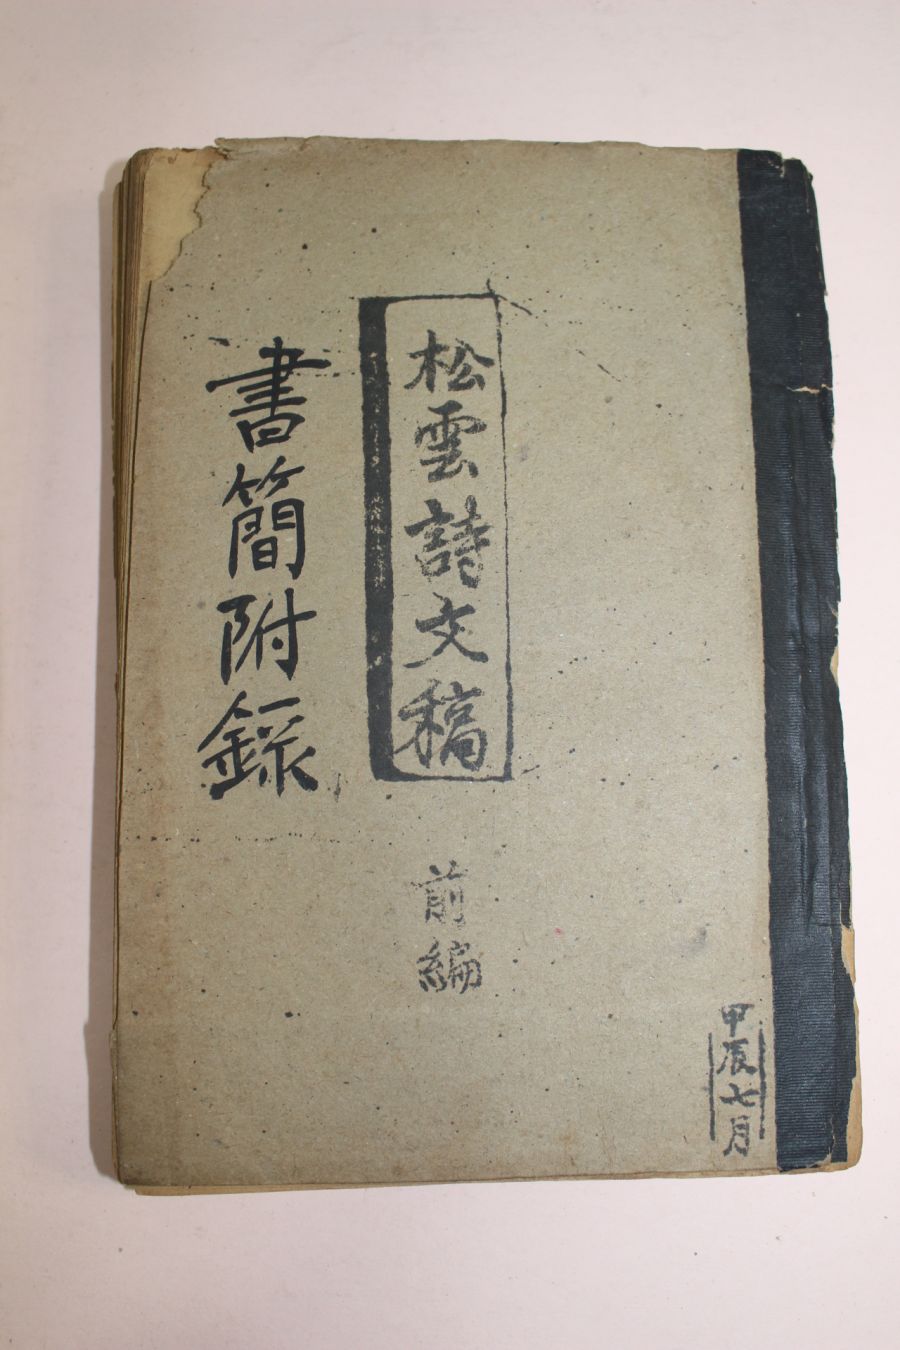 松雲詩文稿
前編
書簡附錄
甲辰七月